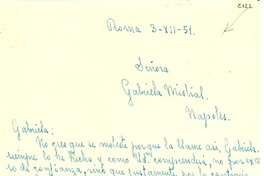 2122
Roma 3-XII-51.
Señora
Gabriela Mistral.
Napoles.
Gabriela:
No creo que se moleste porque la llame así, Gabriela
siempre lo he dicho y como Ud. comprenderá, no por exce
so de confianza, sino que justamente por lo contrario